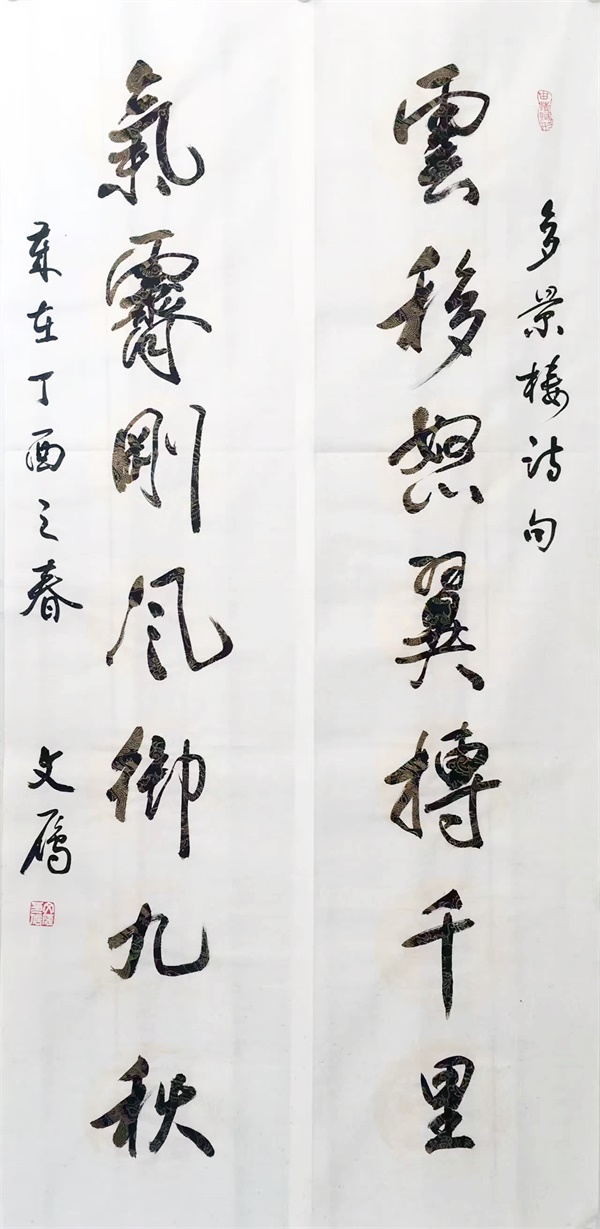 多景樓詩句
雲移怒翼搏千里
氣霽剛風御九秋
歲在丁酉之春 文鴈